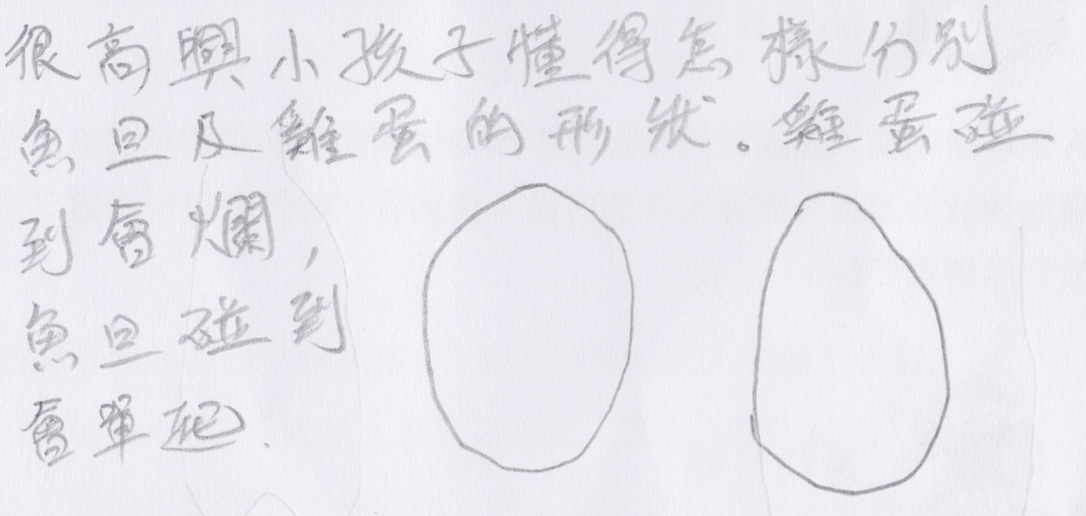 很高興小孩子懂得怎樣分别
魚旦及雞蛋的形狀。雞蛋碰
到會爛，
魚旦碰到
會單起.